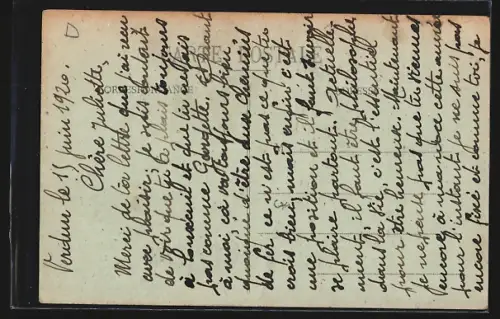 CARTE POSTALE
CORRESPONDANCE
Verdun le 15 juin 1920.
Chère Juliette,
Merci de ta lettre que j'ai reçu
avec plaisir; je vois
de voir que tu te plais toujours
à Luxeuil et que tu ne fais
pas comme Georgette. Quant
à moi ça va toujours bien
d'être aux Chemins
de fer ce n'est pas ce qu'on
croit bien, mais enfin c'est
une position et il faut savoir
se plaire partout. Actuelle-
ment, il faut être philosophe
dans la vie, c'est l'essentiel
pour être heureux. Maintenant
je ne pense pas que tu viennes
encore à cette année
pour l'instant je ne suis pas
encore fixé et comme toi, je